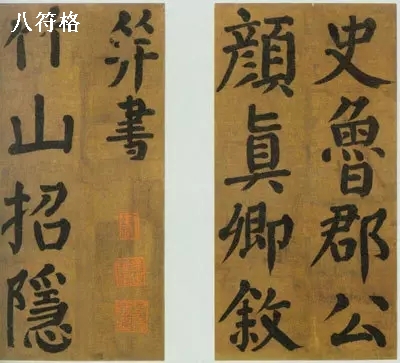 八符格
史魯郡公
顏眞卿敘
并書
竹山招隱